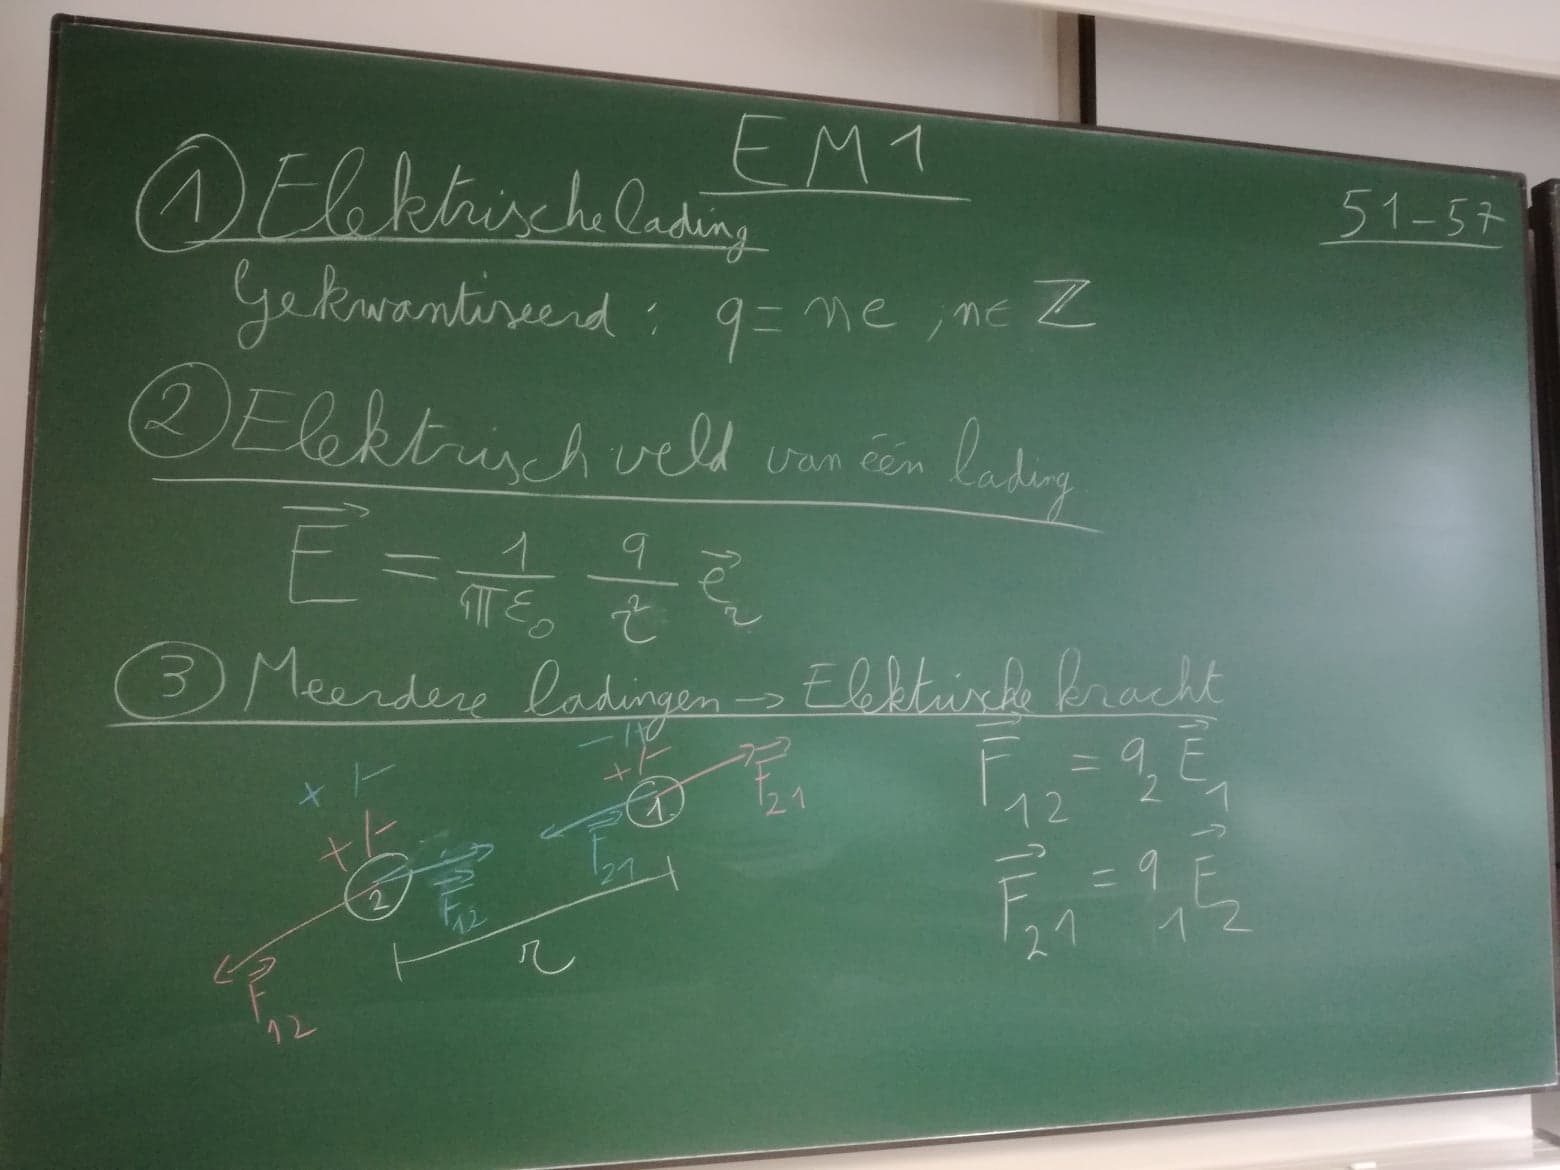 EM1
51-57
① Elektrische lading
Gekwantiseerd : q = ne ; n ∈ Z
② Elektrisch veld van één lading
E⃗ = 1/(πε₀) q/r² e⃗ᵣ
③ Meerdere ladingen → Elektrische kracht
+/-
+/-
1
F⃗₂₁
F⃗₁₂ = q₂ E⃗₁
+/-
2
F⃗₁₂
F⃗₂₁
F⃗₂₁ = q₁ E⃗₂
r
F⃗₁₂